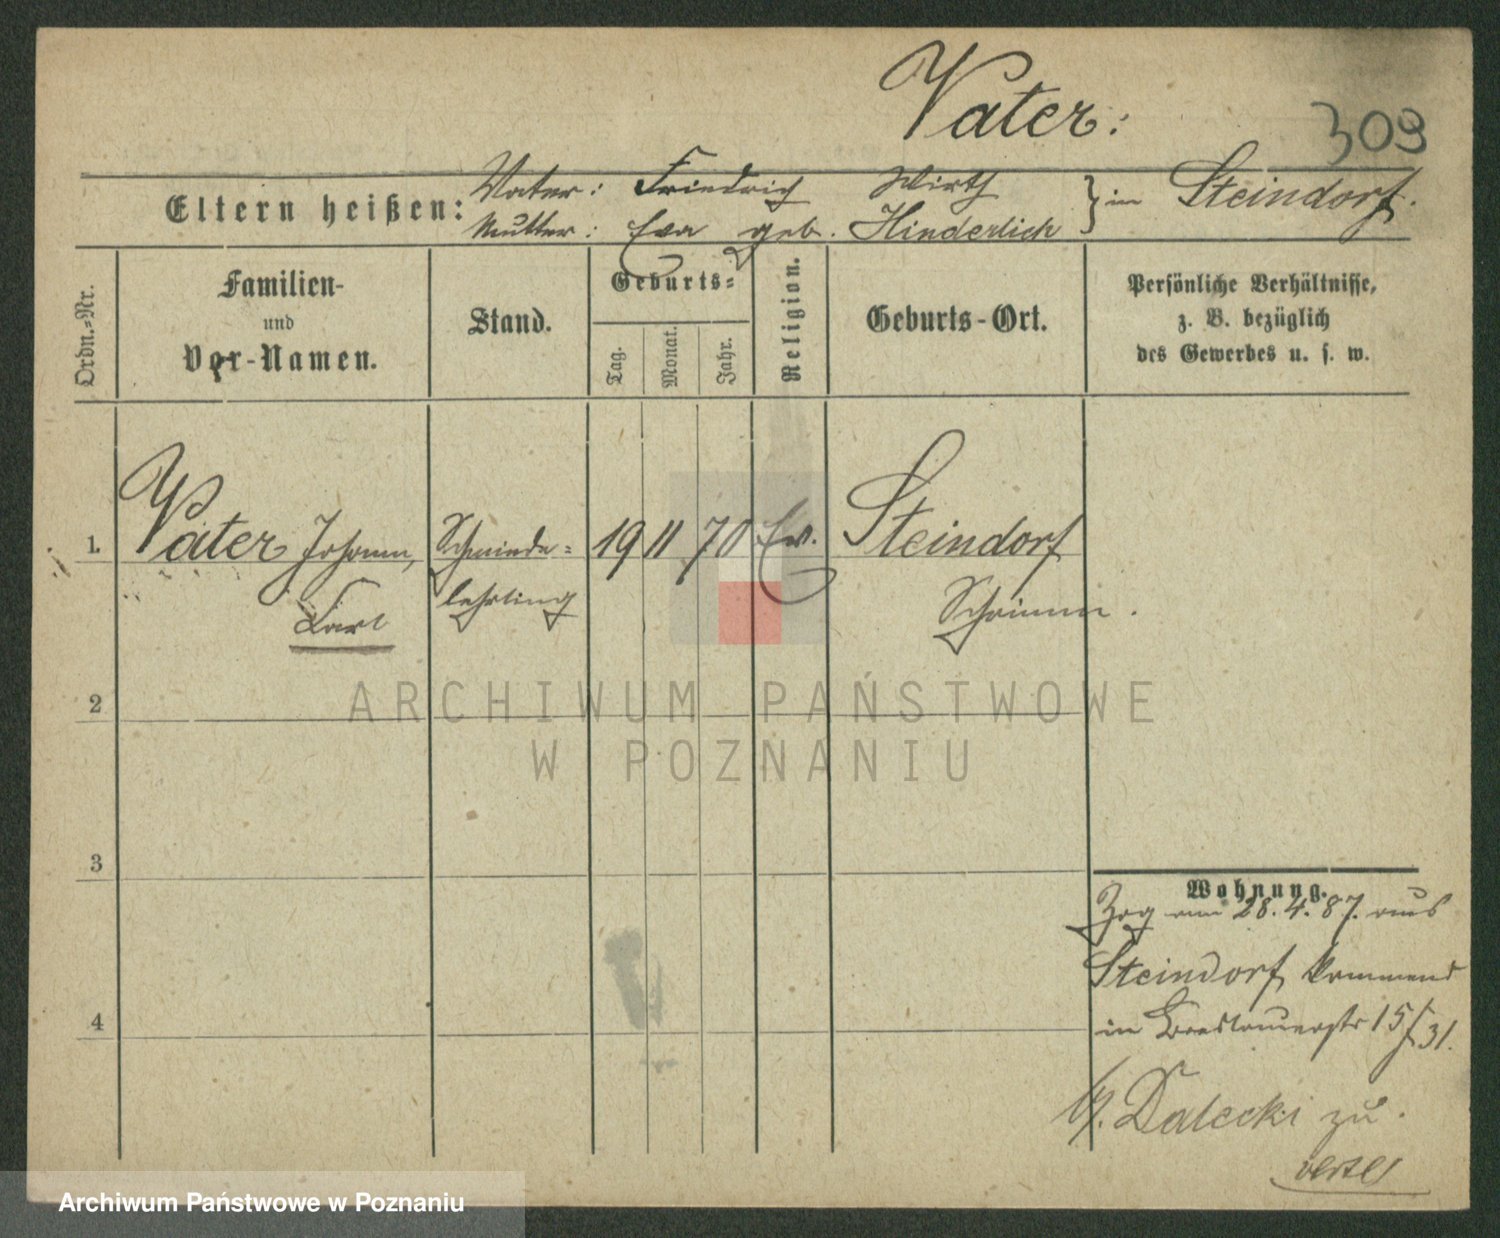 Vater:
309
Eltern heißen:
Vater: Friedrich Wirth
Mutter: Eva geb. Hinderlich
} in Steindorf.
Ordn.-Nr.
Familien-
und
Vor-Namen.
Stand.
Geburts-
Tag.
Monat.
Jahr.
Religion.
Geburts-Ort.
Persönliche Verhältnisse,
z. B. bezüglich
des Gewerbes u. s. w.
1. Vater Johann, Schmiede- 19 11 70 Ev. Steindorf
Karl lehrling Schrimm.
2
3
4
Wohnung.
Zog am 28.4.87. aus
Steindorf kommend
in Breslauerstr 15/31.
b/. Dalecki zu.
ARCHIWUM PAŃSTWOWE
W POZNANIU
Archiwum Państwowe w Poznaniu